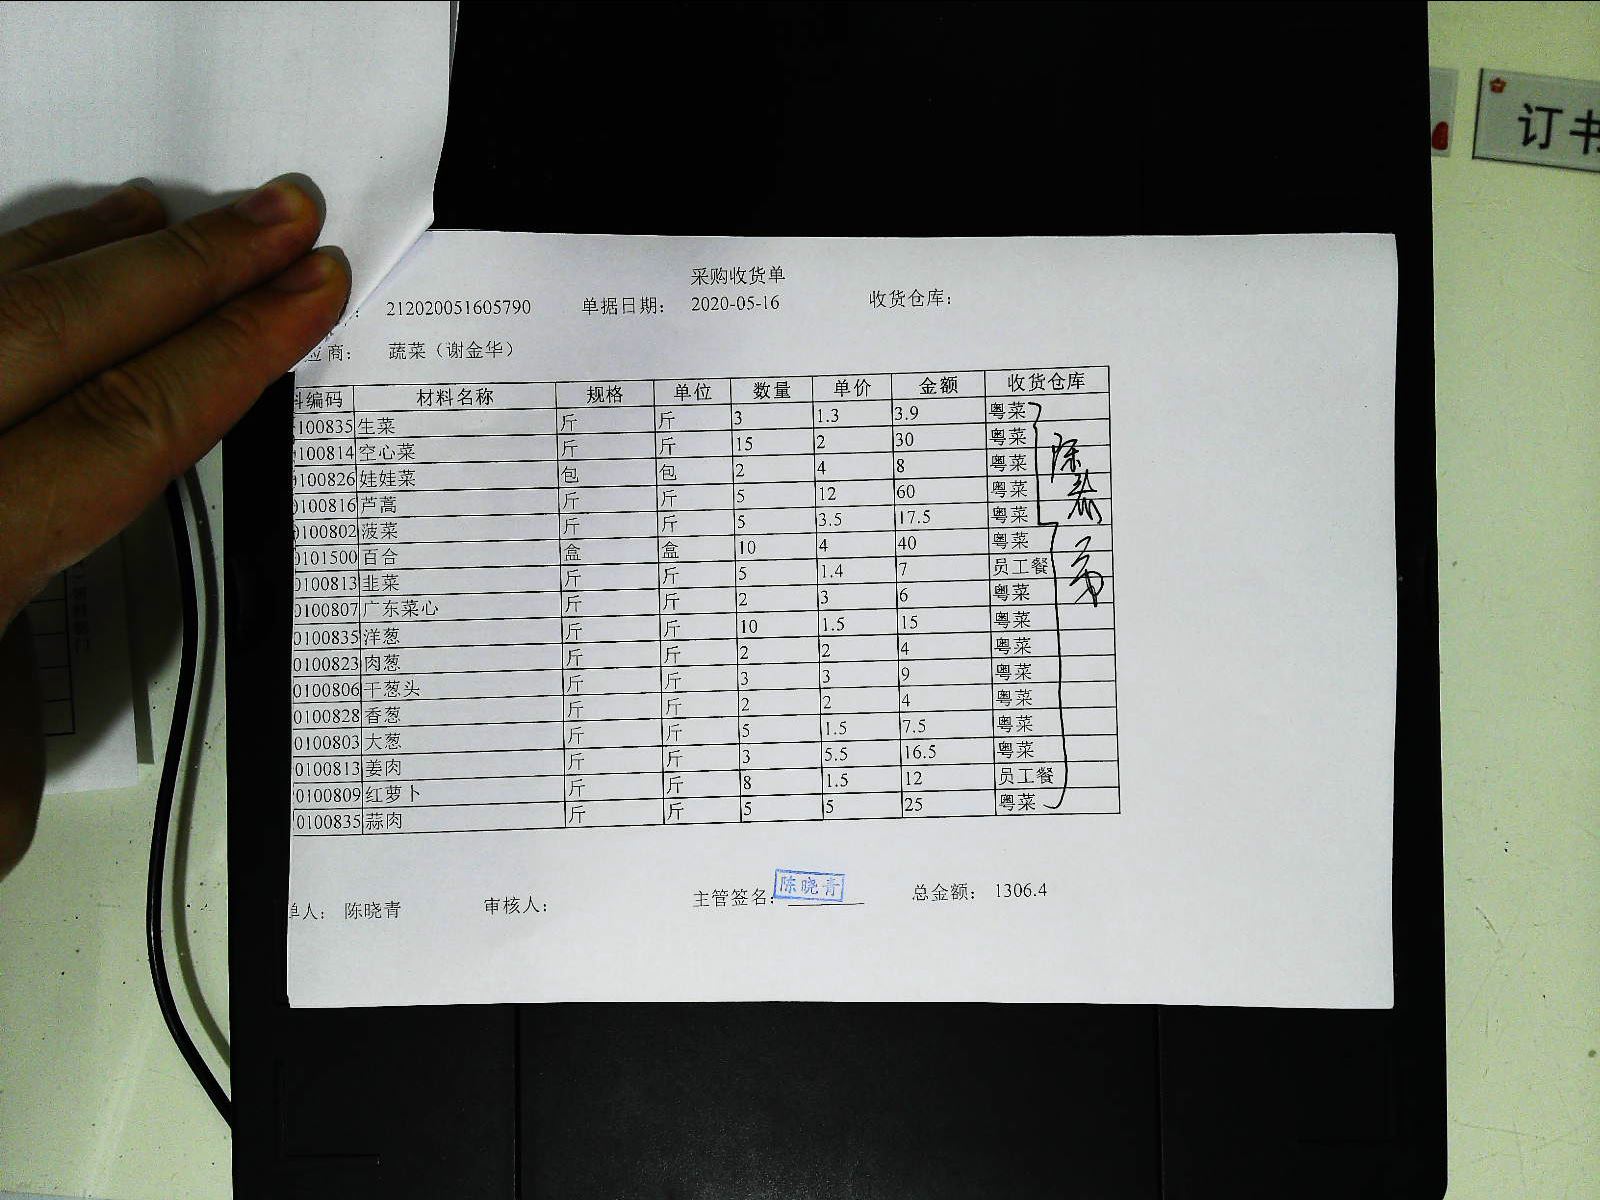 订书
采购收货单
212020051605790 单据日期: 2020-05-16 收货仓库:
应商: 蔬菜（谢金华）
料编码 材料名称 规格 单位 数量 单价 金额 收货仓库
0100835 生菜 斤 斤 3 1.3 3.9 粤菜
0100814 空心菜 斤 斤 15 2 30 粤菜
0100826 娃娃菜 包 包 2 4 8 粤菜
0100816 芦蒿 斤 斤 5 12 60 粤菜
0100802 菠菜 斤 斤 5 3.5 17.5 粤菜
0101500 百合 盒 盒 10 4 40 粤菜
0100813 韭菜 斤 斤 5 1.4 7 员工餐
0100807 广东菜心 斤 斤 2 3 6 粤菜
0100835 洋葱 斤 斤 10 1.5 15 粤菜
0100823 肉葱 斤 斤 2 2 4 粤菜
0100806 干葱头 斤 斤 3 3 9 粤菜
0100828 香葱 斤 斤 2 2 4 粤菜
0100803 大葱 斤 斤 5 1.5 7.5 粤菜
0100813 姜肉 斤 斤 3 5.5 16.5 粤菜
0100809 红萝卜 斤 斤 8 1.5 12 员工餐
0100835 蒜肉 斤 斤 5 5 25 粤菜
单人: 陈晓青 审核人: 主管签名: 陈晓青 总金额: 1306.4